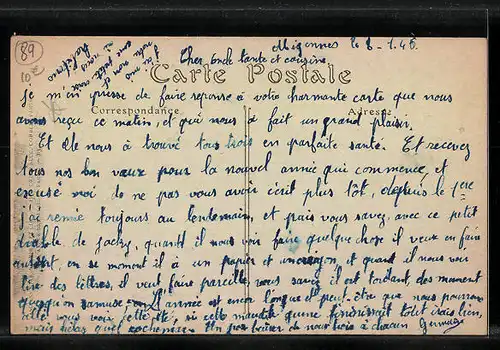 89
10€
Migennes le 8-1.46.
Cher oncle tante et cousin
Carte Postale
Je m'ai presse de faire reponse à votre charmante carte que nous
Correspondance Adresse
avons reçu ce matin, et qui nous a fait un grand plaisir.
Et elle nous à trouvé tous trois en parfaite santé. Et recevez
tous nos bon vœux pour la nouvel année qui commence, et
excusé moi de ne pas vous avoir écrit plus tôt, depuis le 1ere
j'ai remie toujours au lendemain, et puis vous savez, avec ce petit
diable de jacky, quand il nous voi faire quelque chose il veux en faire
autant, en se moment il à un papier et un crayon et quand il nous voi
lire des lettres, il veut faire pareille, vous savez il est tordant des moment
quesqu'on samuse. L'année est encor longue et peut-être que nous pourrons
allé vous voir cette été, si cette maudite guerre finirrait tolet vais bien,
mais hélas quel cochonerie. Un gros baiser de nous trois à chacun Germaine